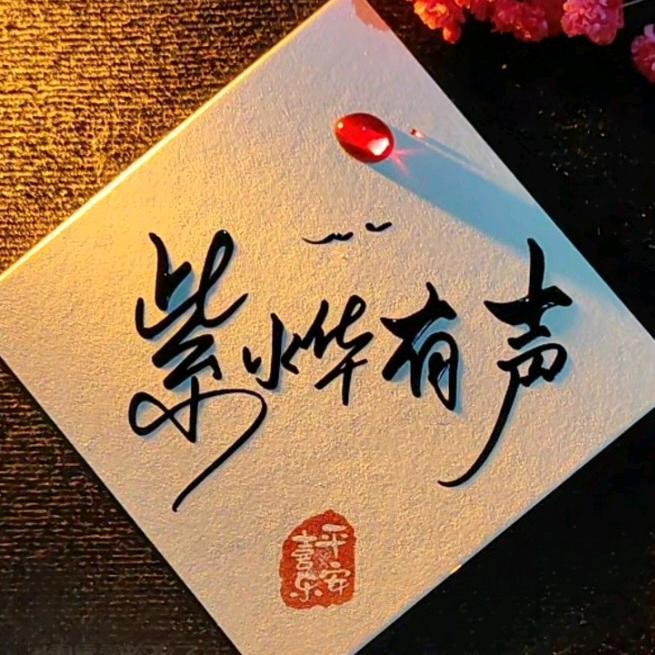 紫烨有声
平安
喜乐